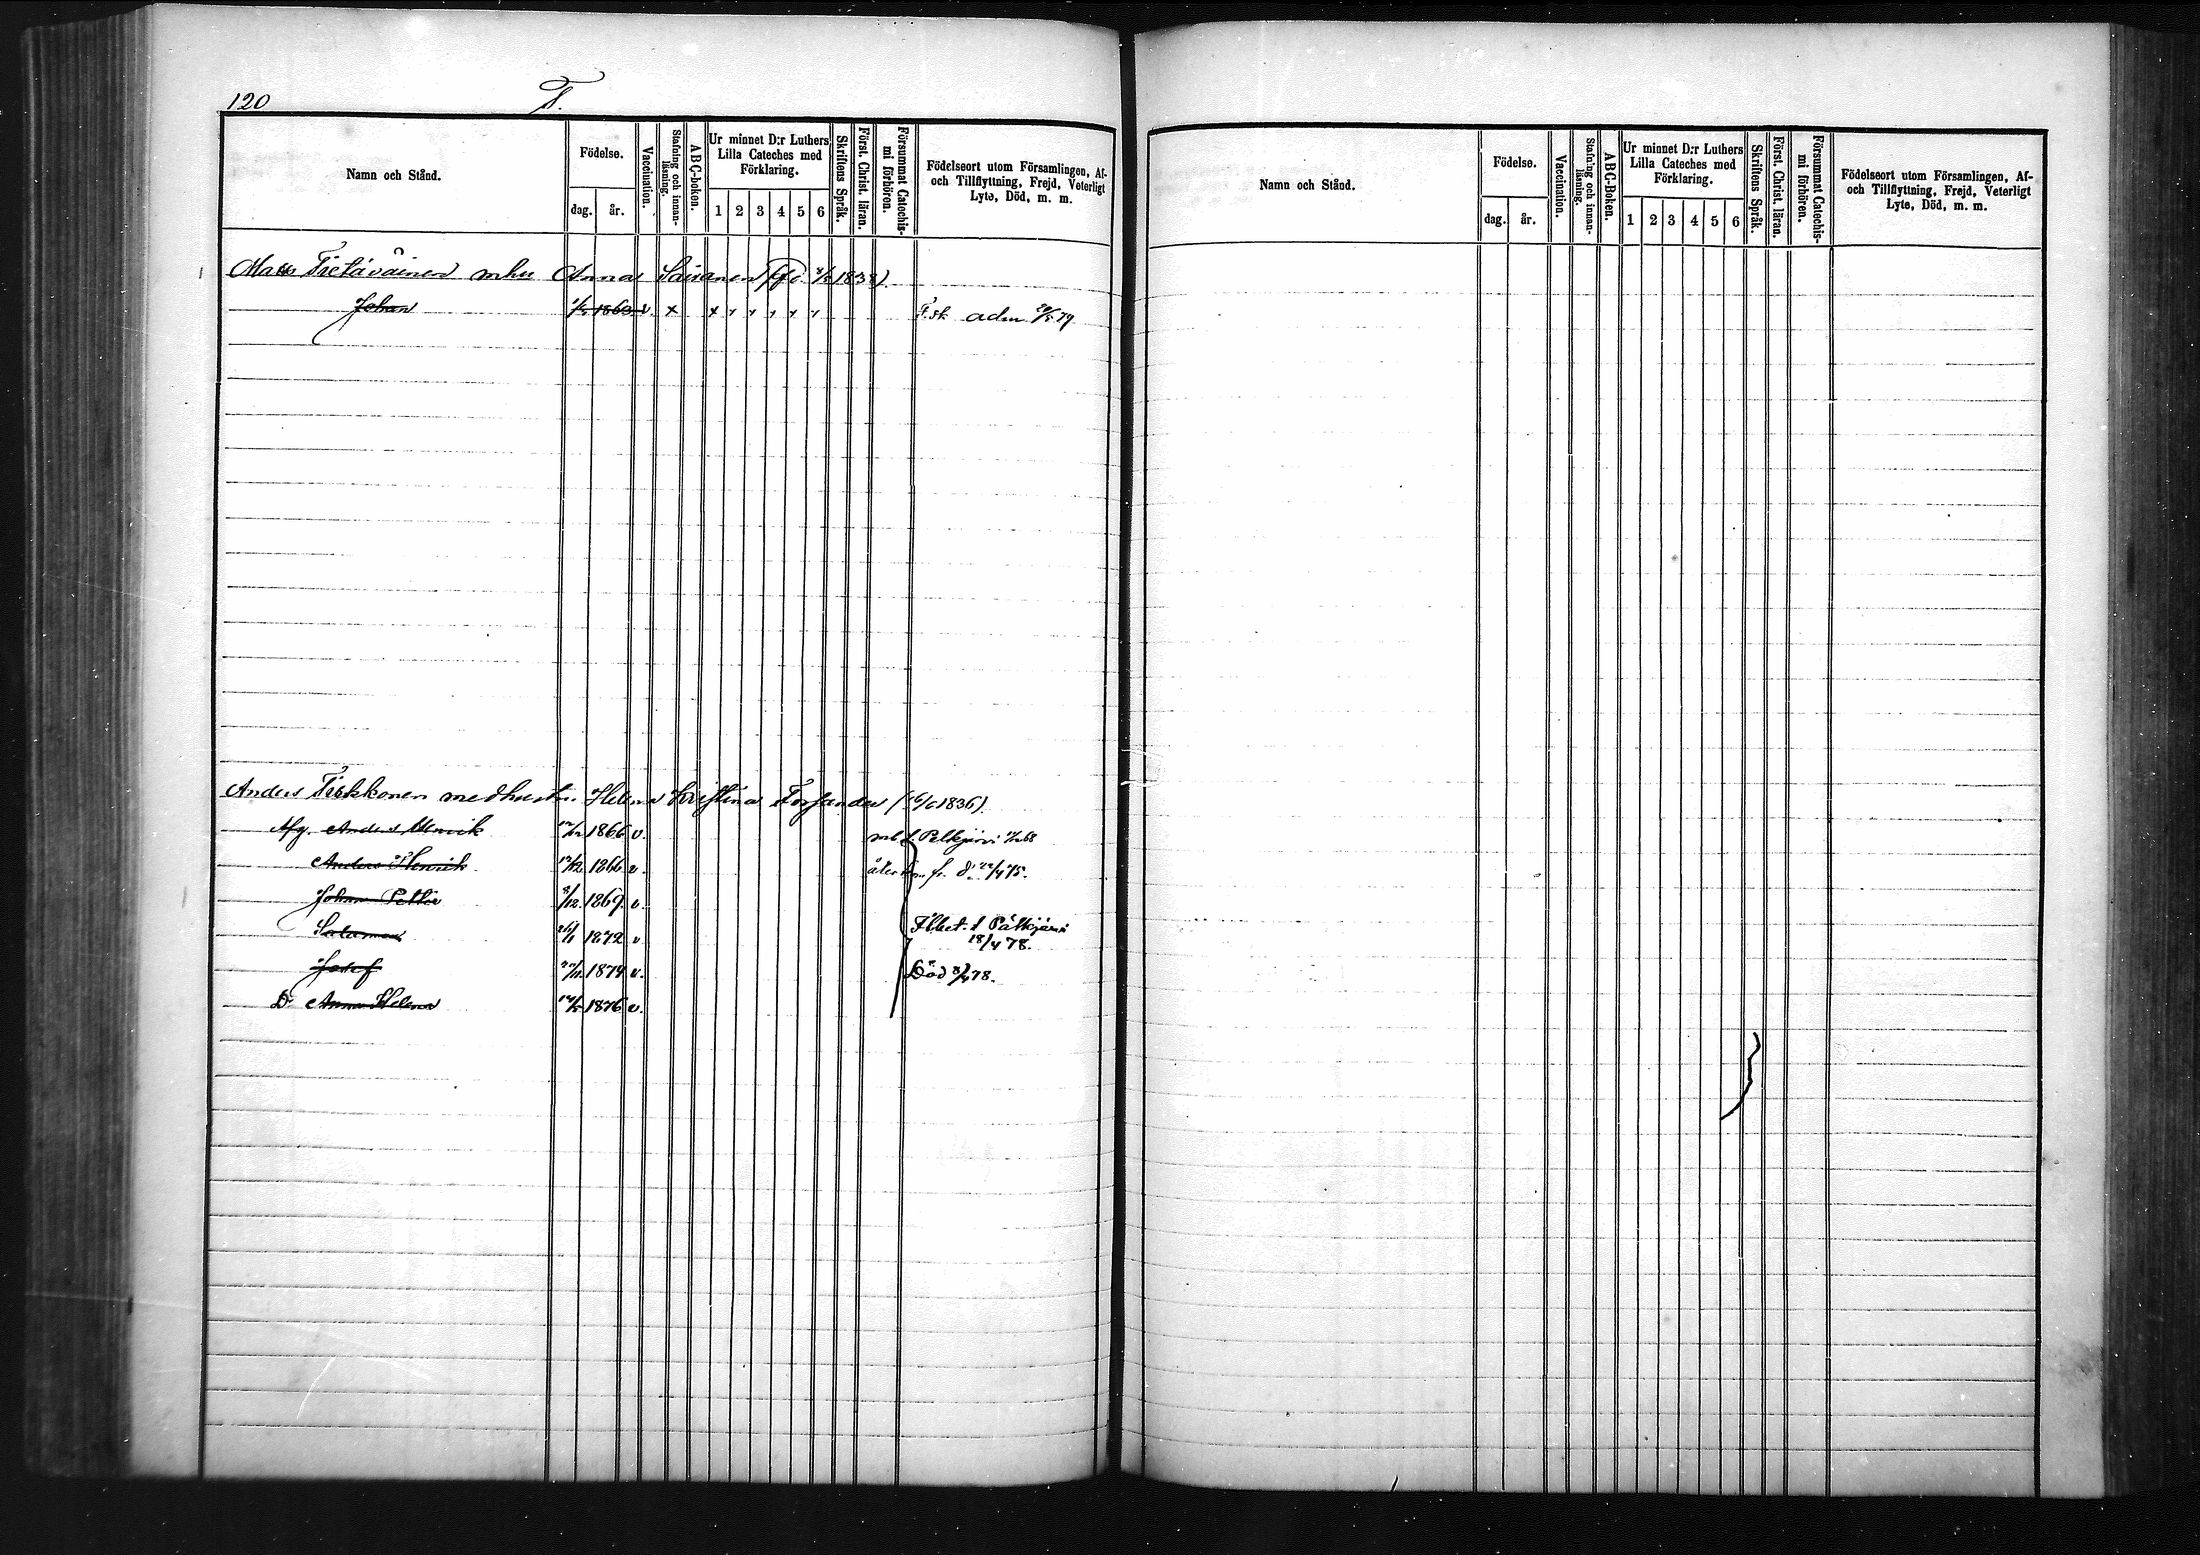 120 T.
Namn och Stånd.
Födelse.
dag. år.
Vaccination.
Stafning och innan-
läsning.
ABC-boken.
Ur minnet D:r Luthers
Lilla Cateches med
Förklaring.
1 2 3 4 5 6
Skriftens Språk.
Först. Christ. läran.
Försummat Catechis-
mi förhören.
Födelseort utom Församlingen, Af-
och Tillflyttning, Frejd, Veterligt
Lyte, Död, m. m.
Matts Tietäväinen mhu Anna 1838).
Johan 1863 v. x x
adm 79
Anders medhustru Helena Kristina (1836).
Afg. Anders Henrik 1866 v. Pelkjärvi 68
Anders Henrik 1866 v. fr. d:o 75.
Johan Petter 1869. v.
Salamon 1872 v t Pälkjärvi
18/4 78.
Josef 1874 v. Död 78.
D:r Anna Helena 1876 v.
Namn och Stånd.
Födelse.
dag. år.
Vaccination.
Stafning och innan-
läsning.
ABC-Boken.
Ur minnet D:r Luthers
Lilla Cateches med
Förklaring.
1 2 3 4 5 6
Skriftens Språk.
Först Christ. läran.
Försummat Catechis-
mi förhören.
Födelseort utom Församlingen, Af-
och Tillflyttning, Frejd, Veterligt
Lyte, Död, m. m.